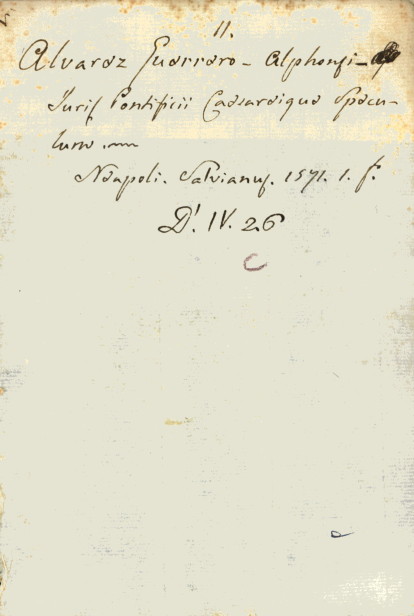 11.
Alvarez Guerrero - Alphonsi -
Juris Pontificii Caesareique Specu-
lum.
Neapoli. Salvianus. 1571. 1. f.
D'. IV. 26